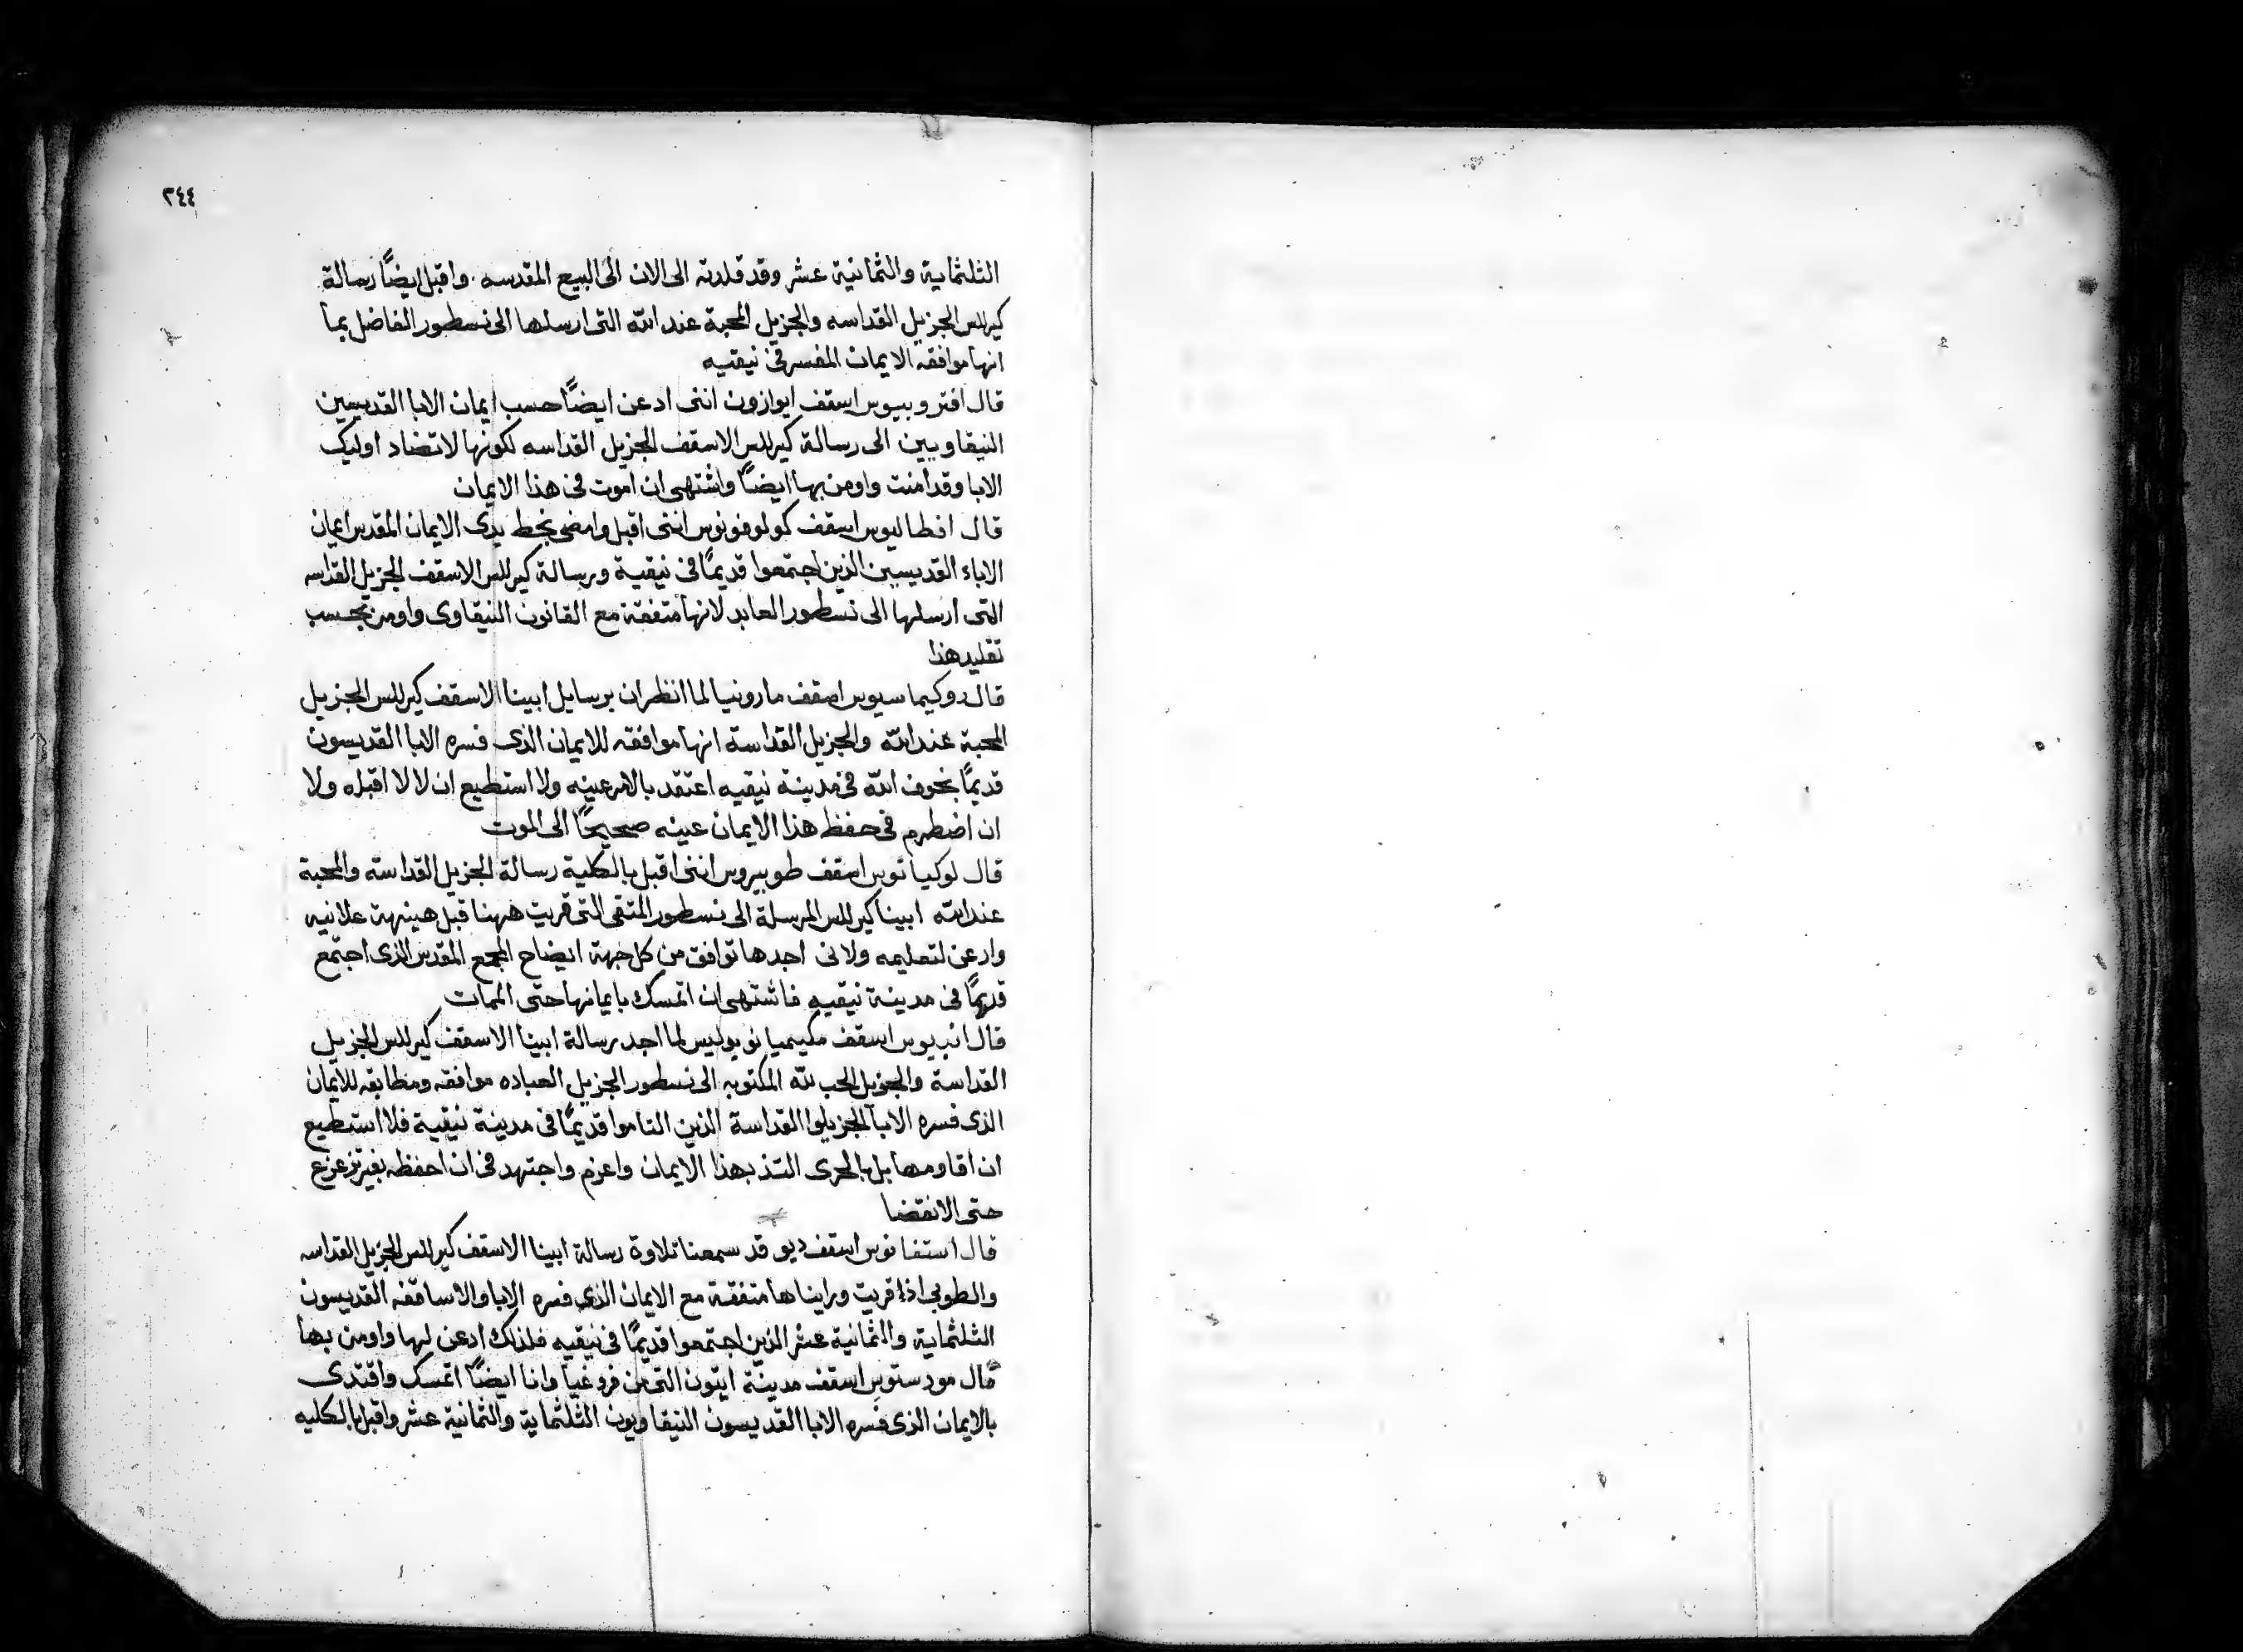 ٢٤٤
الثلثماية والثمانية عشر وقد قلدته الى الان الى البيع المقدسه. واقبل ايضًا رسالة
كيرللس الجزيل القداسه والجزيل المحبة عند الله التى ارسلها الى نسطور الفاضل بما
انها موافقه الايمان المفسر فى نيقيه
قال افتروبيوس اسقف ايوازون اننى ادعن ايضًا حسب ايمان الابا القديسين
النيقاويين الى رسالة كيرللس الاسقف الجزيل القداسه لكونها لا تضاد اوليك
الابا وقد امنت واومن بها ايضًا واشتهى ان اموت فى هذا الايمان
قال افطاليوس اسقف كولوفونوس اننى اقبل وامضى بخط يدى الايمان المقدس ايمان
الاباء القديسين الذين اجتمعوا قديمًا فى نيقية ورسالة كيرللس الاسقف الجزيل القداسه
التى ارسلها الى نسطور العابد لانها متفقة مع القانون النيقاوى واومن بحسب
تقليد هذا
قال دوكيماسيوس اسقف مارونيا لما انظر ان برسايل ابينا الاسقف كيرللس الجزيل
المحبة عند الله والجزيل القداسة انها موافقه للايمان الذى فسره الابا القديسون
قديمًا بخوف الله فى مدينة نيقيه اعتقد بالامر عينه ولا استطيع ان لا لا اقبله ولا
ان اضطرم فى حفظ هذا الايمان عينه صحيحًا الى الموت
قال لوكيانوس اسقف طوبيروس اننى اقبل بالكلية رسالة الجزيل القداسة والمحبة
عند الله ابينا كيرللس المرسلة الى نسطور المتقى التى قريت ههنا قبل هينهة علانيه
وادعن لتعليمه ولانى اجدها توافق من كل جهة ايضاح المجمع المقدس الذى اجتمع
قديمًا فى مدينة نيقيه فاشتهى ان اتمسك بايمانها حتى الممات
قال انيوس اسقف مكيميانوبوليس لما اجد رسالة ابينا الاسقف كيرللس الجزيل
القداسة والجزيل الحب لله المكتوبه الى نسطور الجزيل العباده موافقه ومطابقه للايمان
الذى فسره الابا الجزيلوا القداسة الذين التاموا قديمًا فى مدينة نيقية فلا استطيع
ان اقاومها بل بالحرى التذ بهذا الايمان واعزم واجتهد فى ان احفظه بغير تزعزع
حتى الانقضا
قال استفانوس اسقف ديو قد سمعنا تلاوة رسالة ابينا الاسقف كيرللس الجزيل القداسه
والطوبى اذا قريت وراينا ها متفقة مع الايمان الذى فسره الابا والاساقفه القديسون
الثلثماية والثمانية عشر الذين اجتمعوا قديمًا فى نيقيه فلذلك ادعن لها واومن بها
قال مودستوس اسقف مدينة ايتون التى من فروغيا وانا ايضًا اتمسك واقتدى
بالايمان الذى فسره الابا القديسون النيقاويون الثلثماية والثمانية عشر واقبل بالكليه